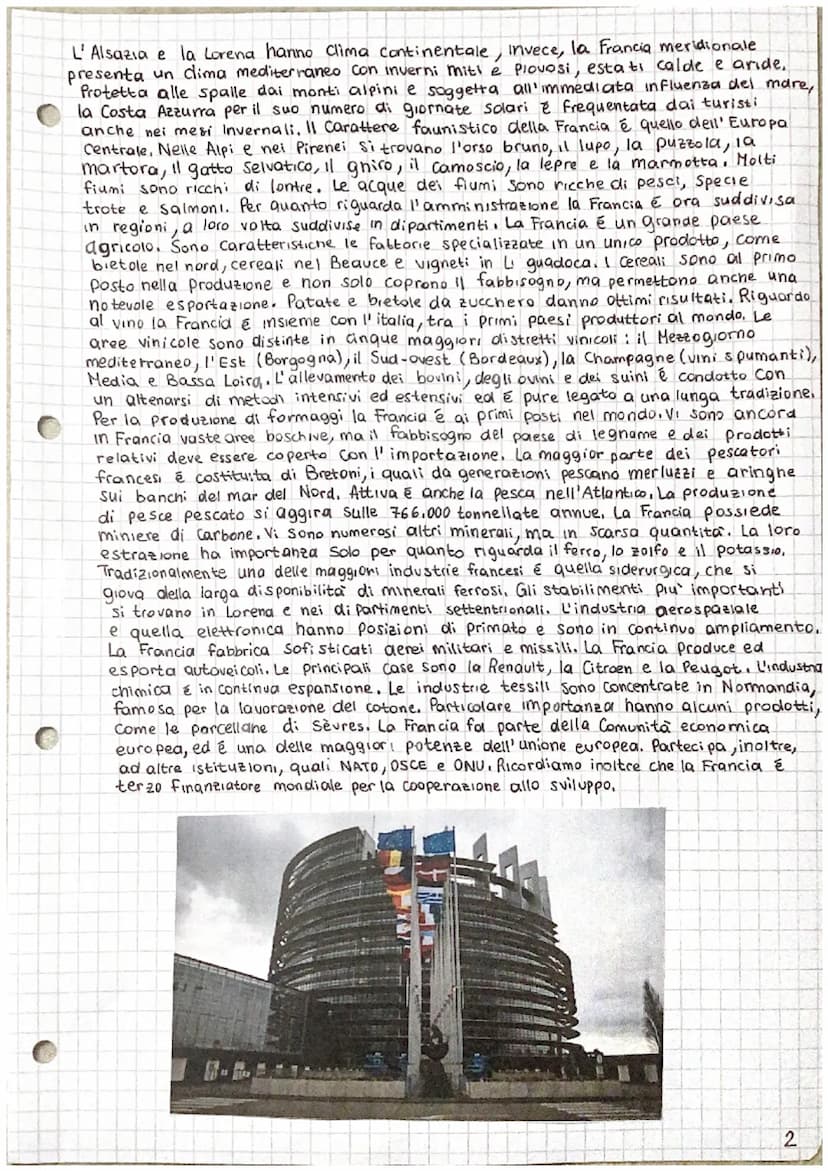 L'Alsazia e la Lorena hanno clima continentale, invece, la Francia meridionale
presenta un clima mediterraneo con inverni miti e piovosi, estati calde e aride.
Protetta alle spalle dai monti alpini e soggetta all'immediata influenza del mare,
la Costa Azzurra per il suo numero di giornate solari è frequentata dai turisti
anche nei mesi invernali. Il carattere faunistico della Francia è quello dell'Europa
Centrale. Nelle Alpi e nei Pirenei si trovano l'orso bruno, il lupo, la puzzola, la
martora, il gatto selvatico, il ghiro, il camoscio, la lepre e la marmotta. Molti
fiumi sono ricchi di lontre. Le acque dei fiumi sono ricche di pesci, specie
trote e salmoni. Per quanto riguarda l'amministrazione la Francia è ora suddivisa
in regioni, a loro volta suddivise in dipartimenti. La Francia è un grande paese
agricolo. Sono caratteristiche le fattorie specializzate in un unico prodotto, come
bietole nel nord, cereali nel Beauce e vigneti in Li guadoca. I cereali sono al primo
posto nella produzione e non solo coprono il fabbisogno, ma permettono anche una
notevole esportazione. Patate e bietole da zucchero danno ottimi risultati. Riguardo
al vino la Francia è insieme con l'italia, tra i primi paesi produttori al mondo. Le
aree vinicole sono distinte in cinque maggiori distretti vinicoli: il Mezzogiorno
mediterraneo, l'Est (Borgogna), il Sud-ovest (Bordeaux), la Champagne (vini spumanti),
Media e Bassa Loira. L'allevamento dei bovini, degli ovini e dei suini è condotto con
un altenarsi di metodi intensivi ed estensivi ed è pure legato a una lunga tradizione.
Per la produzione di formaggi la Francia è ai primi posti nel mondo. Vi sono ancora
in Francia vaste aree boschive, ma il fabbisogno del paese di legname e dei prodotti
relativi deve essere coperto con l'importazione. La maggior parte dei pescatori
francesi è costituita di Bretoni, i quali da generazioni pescano merluzzi e aringhe
sui banchi del mar del Nord. Attiva è anche la pesca nell'Atlantico. La produzione
di pesce pescato si aggira sulle 766.000 tonnellate annue. La Francia possiede
miniere di carbone. Vi sono numerosi altri minerali, ma in scarsa quantità. La loro
estrazione ha importanza solo per quanto riguarda il ferro, lo zolfo e il potassio.
Tradizionalmente una delle maggiori industrie francesi è quella siderurgica, che si
giova della larga disponibilità di minerali ferrosi. Gli stabilimenti più importanti
si trovano in Lorena e nei dipartimenti settentrionali. L'industria aerospaziale
e quella elettronica hanno posizioni di primato e sono in continuo ampliamento.
La Francia fabbrica sofisticati aerei militari e missili. La Francia produce ed
esporta autoveicoli. Le principali case sono la Renault, la Citroen e la Peugot. L'industria
chimica è in continua espansione. Le industrie tessili sono concentrate in Normandia,
famosa per la lavorazione del cotone. Particolare importanza hanno alcuni prodotti,
come le porcellane di Sèvres. La Francia fa parte della Comunità economica
europea, ed è una delle maggiori potenze dell'unione europea. Partecipa, inoltre,
ad altre istituzioni, quali NATO, OSCE e ONU. Ricordiamo inoltre che la Francia è
terzo finanziatore mondiale per la cooperazione allo sviluppo.
2